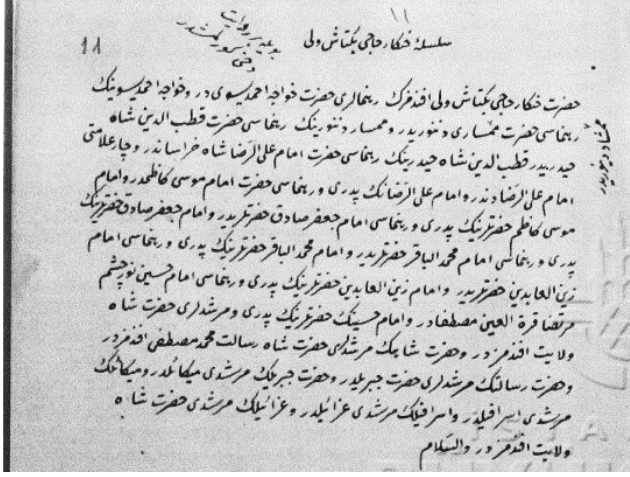 ١١
سلسلهٔ خنكار حاجى بكتاش ولى
بو يله بر روايت
دخى
11
حضرت خنكار حاجى بكتاش ولى افندمزك رهنمالرى حضرت خواجه احمد يسوى در و خواجه احمد يسوينك
رهنماسى حضرت ممسارى دننوريدر و ممسار دننورينك رهنماسى حضرت قطب الدين شاه
حيدريدر قطب الدين شاه حيدرينك رهنماسى حضرت امام على الرضا شاه خراساندر و چار علامتى
امام على الرضادندر و امام على الرضانك پدرى و رهنماسى حضرت امام موسى كاظمدر و امام
موسى كاظم حضرتلرينك پدرى و رهنماسى امام جعفر صادق حضرتلريدر و امام جعفر صادق حضرتلرينك
پدرى و رهنماسى امام محمد الباقر حضرتلريدر و امام محمد الباقر حضرتلرينك پدرى و رهنماسى امام
زين العابدين حضرتلريدر و امام زين العابدين حضرتلرينك پدرى و رهنماسى امام حسين نو چشم
مرتضا قرة العين مصطفادر و امام حسينك حضرتلرينك پدرى و مرشدلرى حضرت شاه
ولايت افندمزدر و حضرت شاهك مرشدلرى حضرت شاه رسالت محمد مصطفى افندمزدر
و حضرت رسالتك مرشدلرى حضرت جبريلدر و حضرت جبريلك مرشدى ميكائلدر و ميكائلك
مرشدى اسرافيلدر و اسرافيلك مرشدى عزرائيلدر و عزرائيلك مرشدى حضرت شاه
ولايت افندمزدر والسلام